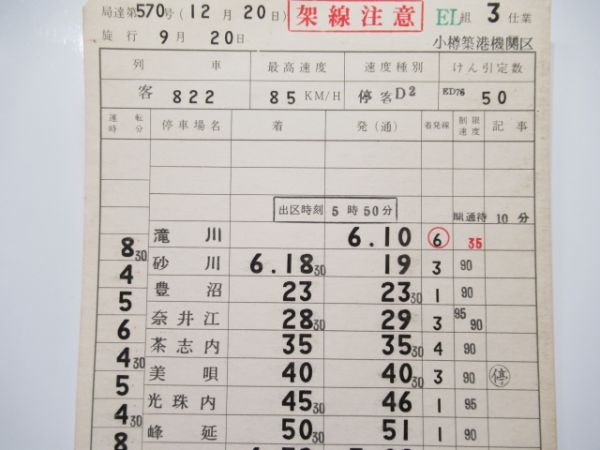 局達第570号(12月20日) 架線注意 EL組 3仕業
施行 9月20日 小樽築港機関区
列車 最高速度 速度種別 けん引定数
客822 85KM/H 停客D2 ED76 50
運転時分 停車場名 着 発(通) 着発線 制限速度 記事
出区時刻 5時50分 関通待 10分
滝川 6.10 6 35
8 30 砂川 6.18 30 19 3 90
4 豊沼 23 23 30 1 90
5 奈井江 28 30 29 3 95 90
6 茶志内 35 35 30 4 90
4 30 美唄 40 40 30 3 90 停
5 光珠内 45 30 46 1 95
4 30 峰延 50 30 51 1 90
8